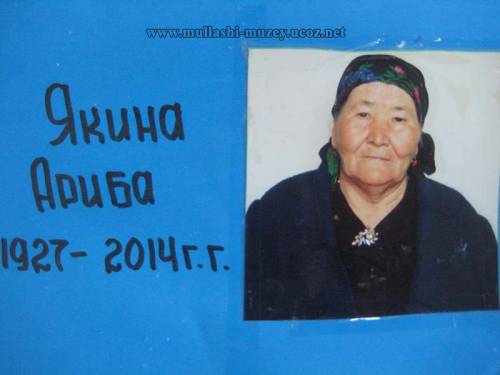 www.mullashi-muzey.ucoz.net
Якина
Ариба
1927- 2014г.г.